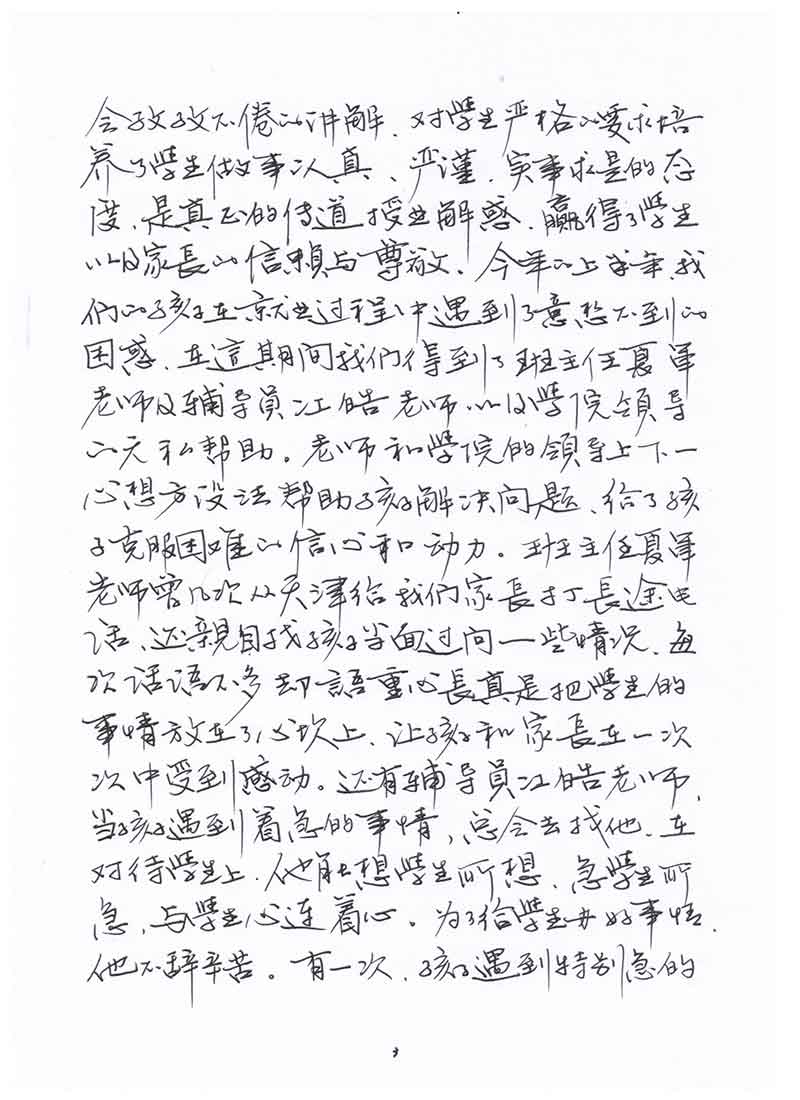 会孜孜不倦的讲解、对學生严格的要求培
养了學生做事认真、严谨、实事求是的态
度、是真正的传道授业解惑、贏得了學生
以及家長的信賴与尊敬、今年的上半年、我
们的孩子在就业过程中遇到了意想不到的
困惑、在這期间我们得到了班主任夏军
老师及辅导員江皓老师以及學院領导
的无私帮助。老师和學院的領导上下一
心想方设法帮助孩子解决问题、给了孩
子克服困难的信心和动力。班主任夏军
老师曾几次从天津给我们家長打長途电
话、还親自找孩子当面过问一些情况、每
次话语不多却語重心長真是把學生的
事情放在了心坎上、让孩子和家長在一次
次中受到感动。还有辅导員江皓老师、
当孩子遇到着急的事情，总会去找他、在
对待學生上、他能想學生所想、急學生所
急、与學生心连着心。为了给學生办好事情、
他不辞辛苦。有一次、孩子遇到特别急的
3